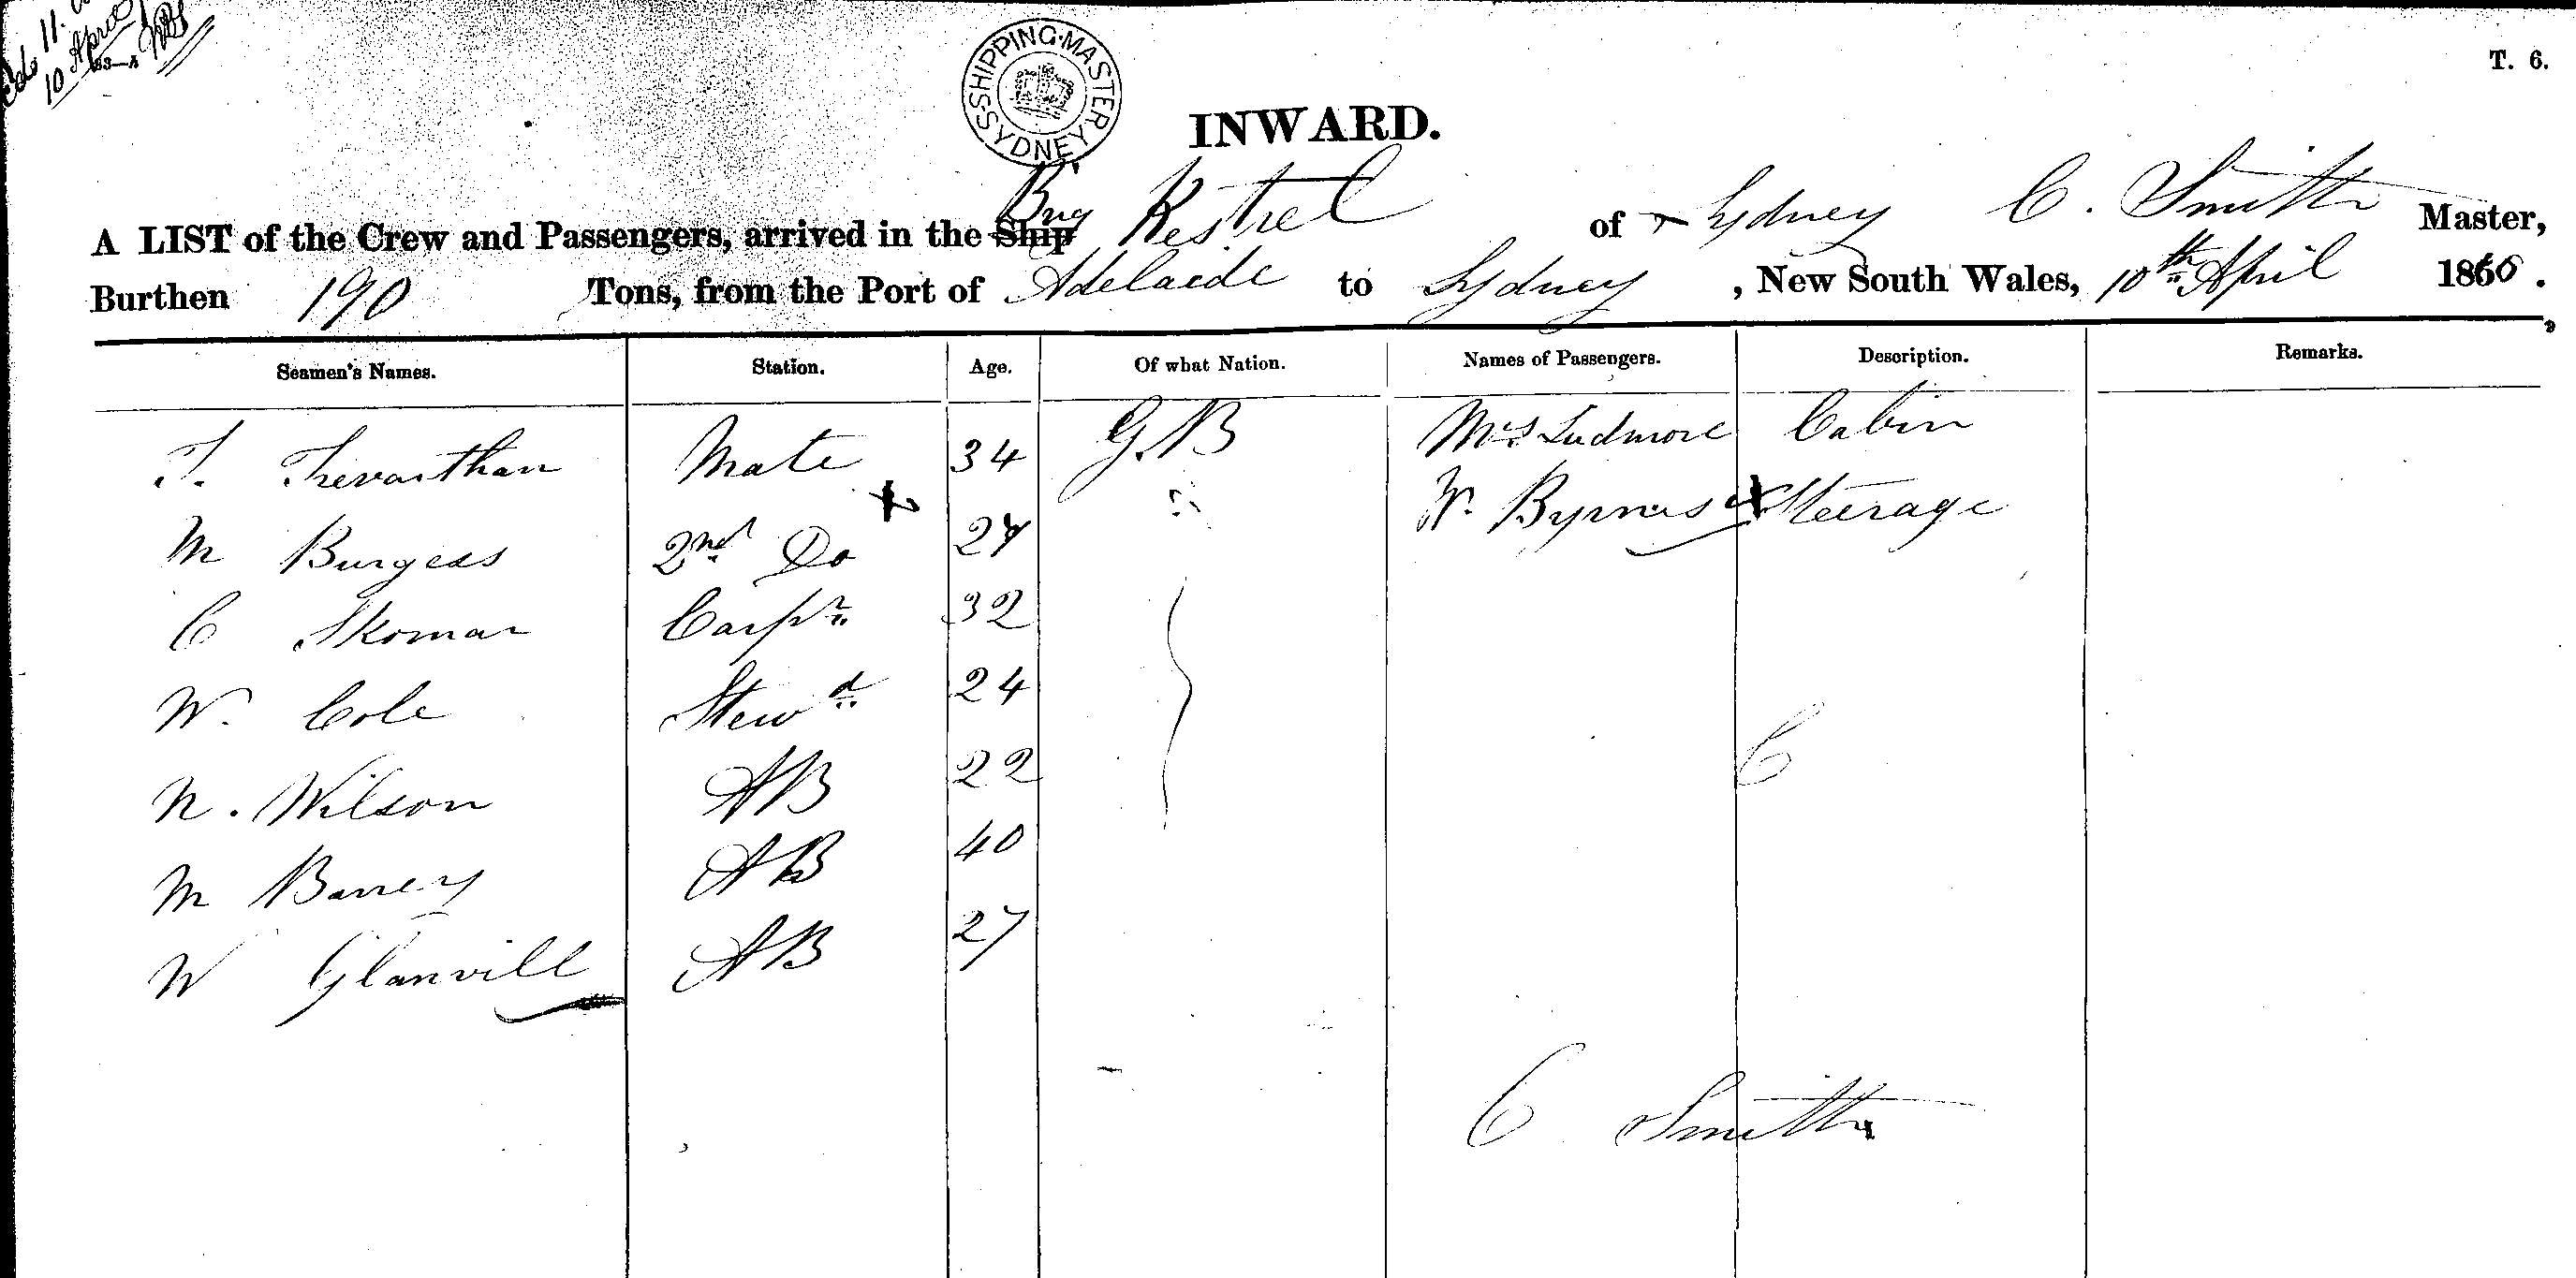 10 April
SHIPPING MASTER SYDNEY
T. 6.
INWARD.
A LIST of the Crew and Passengers, arrived in the Ship Brig Kestrel of Sydney C. Smith Master,
Burthen 190 Tons, from the Port of Adelaide to Sydney, New South Wales, 10th April 1866.
Seamen's Names. Station. Age. Of what Nation. Names of Passengers. Description. Remarks.
T. Trevarthan Mate 34 G.B Mrs Ludmore Cabin
M Burgess 2nd Do 27 " W. Byrnes Steerage
C Skoman Carpr 32
W. Cole Stewd 24
N. Wilson AB 22
C
M Barrey AB 40
W Glanvill AB 27
C Smith